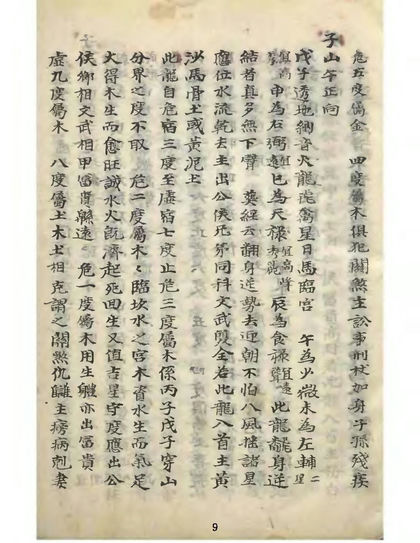 危五度屬金 四度屬木俱犯關煞主訟事刑杖加身子孫殘疾
子山午正向
戊子透地納音火龍虎鴛星日馬臨宮 午為少微未為左輔二星
宜高聳申為右弼宜遠巳為天祿宜高聳辰為食祿宜遠此龍翻身逆
結者真多無下聳 葬經云翻身逆勢去迎朝不怕八風搖諸星
應位水流乾去主出公侯兄弟同科文武雙全若此龍入首主黃
沙馬骨土或黃泥土
此龍自危宿三度至虛宿七度止危三度屬木係丙子戊子穿山
分界之度不取 危二度屬木木臨坎水之宮木資水生而氣足
大得木生而愈旺誠水火既濟起死回生又值吉星守度應出公
侯卿相文武相甲富貴綿遠 危一度屬木用生艤亦出富貴
虛九度屬木 八度屬土木土相克謂之關煞仇讎主癆病剋妻
9